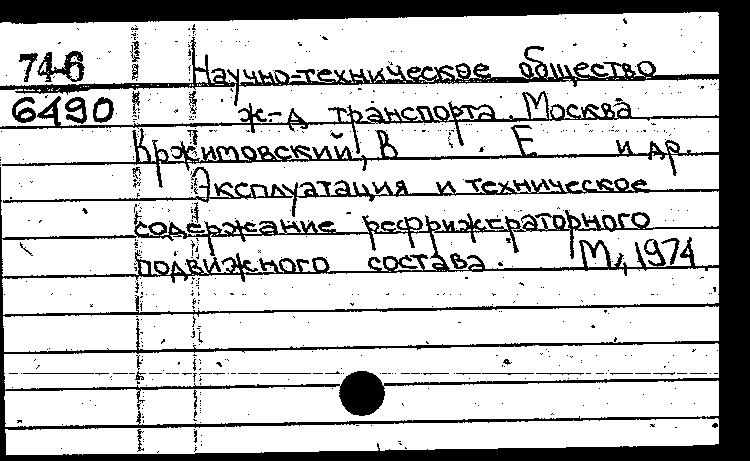 74-6 Научно-техническое общество
6490 ж-д транспорта. Москва
Кржимовский, В. Е и др.
Эксплуатация и техническое
содержание рефрижераторного
подвижного состава. М., 1974